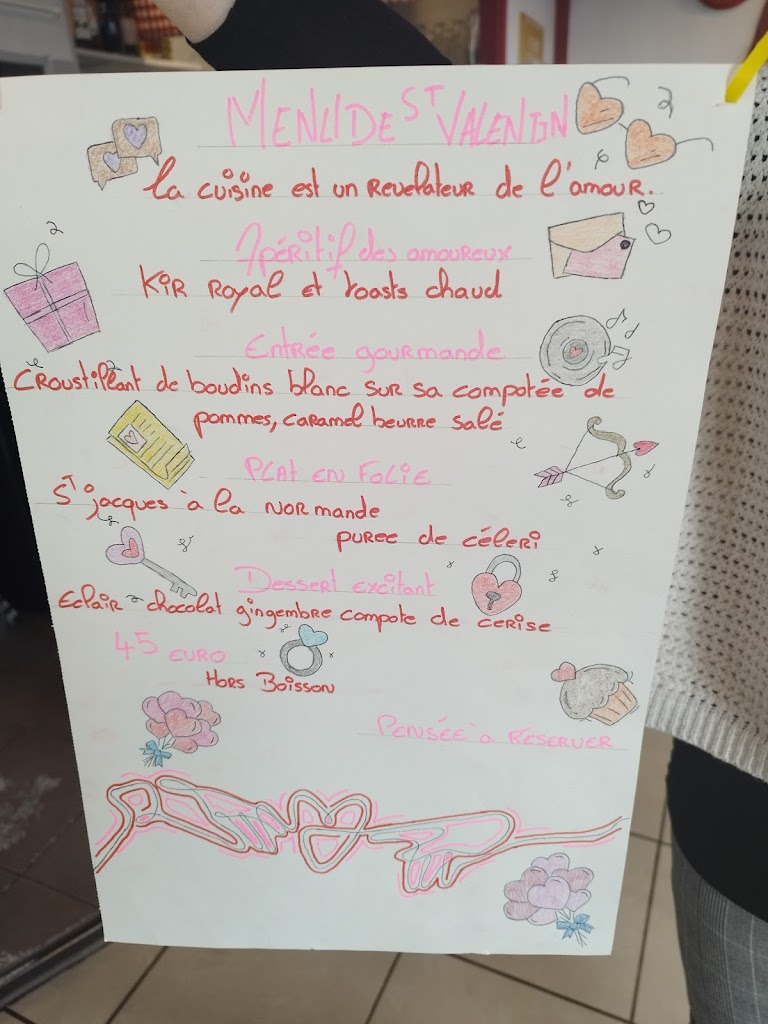 MENU DE ST VALENTIN
la cuisine est un Revelateur de l'amour.
Apéritif des amoureux
Kir Royal et toasts chaud
Entrée gourmande
Croustillant de boudins blanc sur sa compotée de
pommes, caramel beurre salé
Plat en Folie
St jacques à la Normande
puree de céleri
Dessert excitant
Eclair chocolat gingembre compote de cerise
45 euro
Hors Boisson
Pensée a réserver